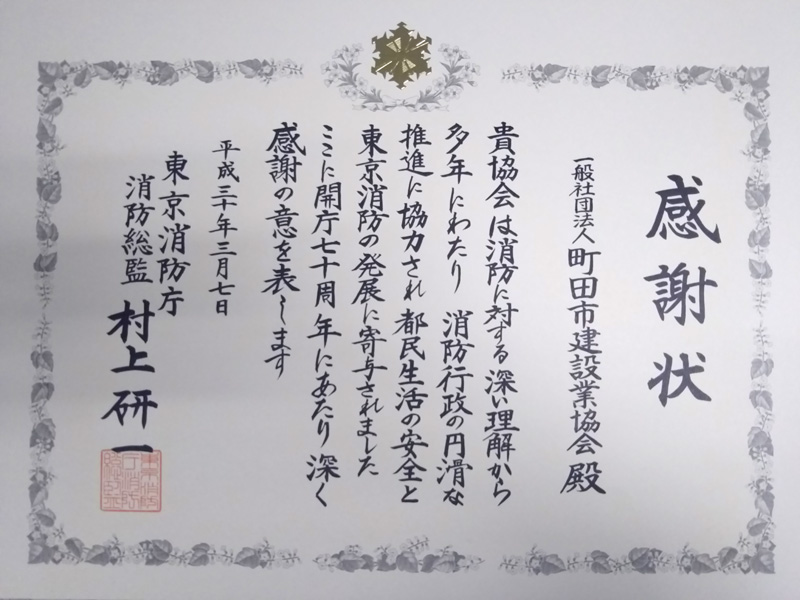 感謝状
一般社団法人町田市建設業協会殿
貴協会は消防に対する深い理解から
多年にわたり 消防行政の円滑な
推進に協力され都民生活の安全と
東京消防の発展に寄与されました
ここに開庁七十周年にあたり深く
感謝の意を表します
平成三十年三月七日
東京消防庁
消防総監 村上研一